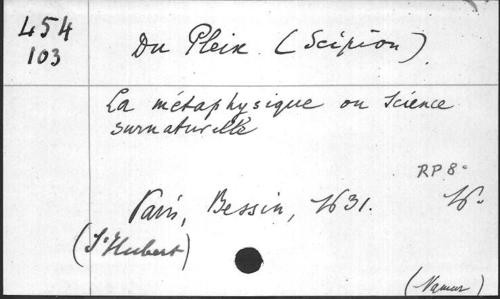 454
103
Du Pleix (Scipion).
La métaphysique ou science
surnaturelle
RP 8°
Paris, Bessin, 1631. 16°
(St Hubert)
(Namur)